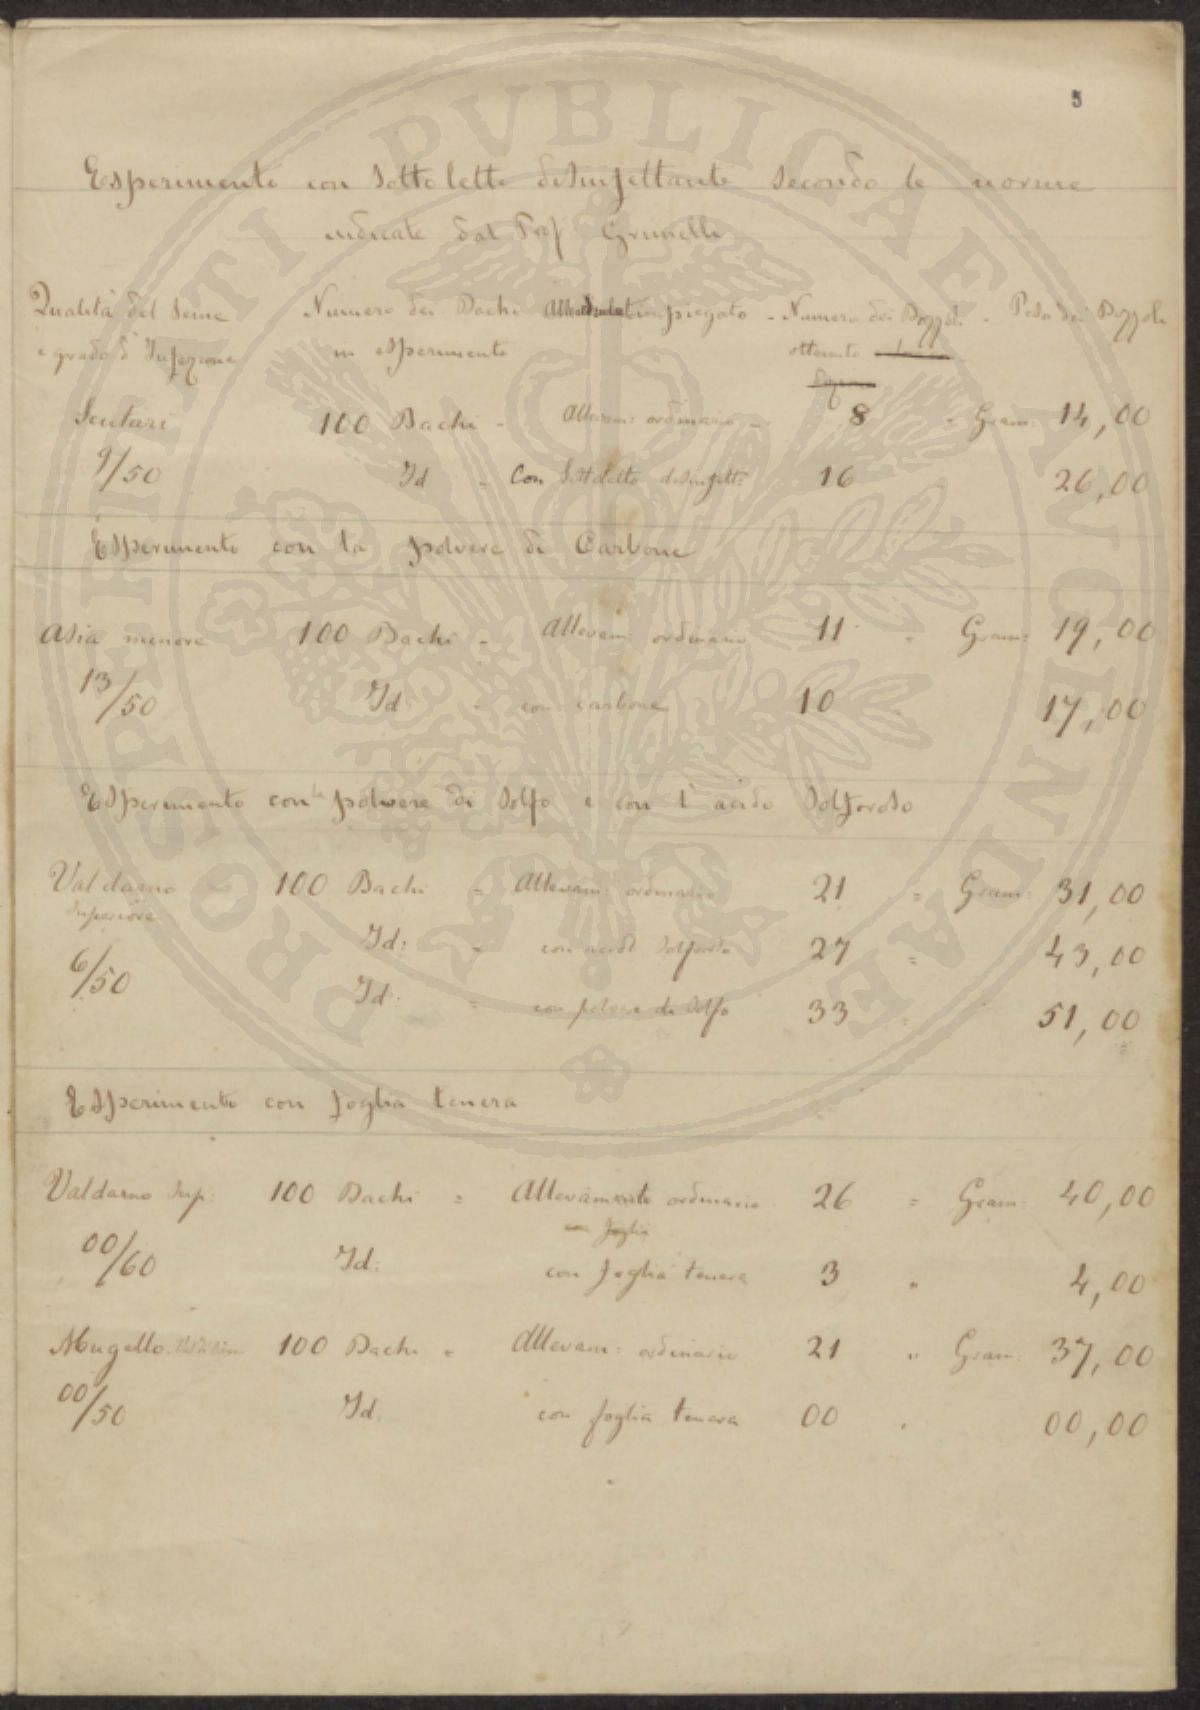 5
Esperimento con sotto letto disinfettante secondo le norme
indicate dal Prof Grimelli
Qualità del Seme Numero dei Bachi impiegato - Numero dei Bozzoli - Peso dei Bozzoli
e grado d'Infezione in esperimento ottenuto
Scutari 100 Bachi - Allevam: ordinario - 8 - Gram: 14,00
9/50 Id - Con Sottoletto disinfett: 16 26,00
Esperimento con la polvere di Carbone
Asia minore 100 Bachi - Allevam: ordinario 11 - Gram: 19,00
13/50 Id - con carbone 10 17,00
Esperimento con la polvere di Solfo e con l'acido Solforoso
Valdarno 100 Bachi = Allevam: ordinario 21 = Gram: 31,00
Superiore
Id: - con acido Solforoso 27 = 43,00
6/50 Id. = con polvere di Solfo 33 51,00
Esperimento con foglia tenera
Valdarno Sup: 100 Bachi = Allevamento ordinario 26 = Gram: 40,00
con foglia
00/60 Id: con foglia tenera 3 " 4,00
Mugello 100 Bachi = Allevam: ordinario 21 " Gram: 37,00
00/50 Id. con foglia tenera 00 . 00,00
PROSPERITATI PVBLICAE AVGENDAE